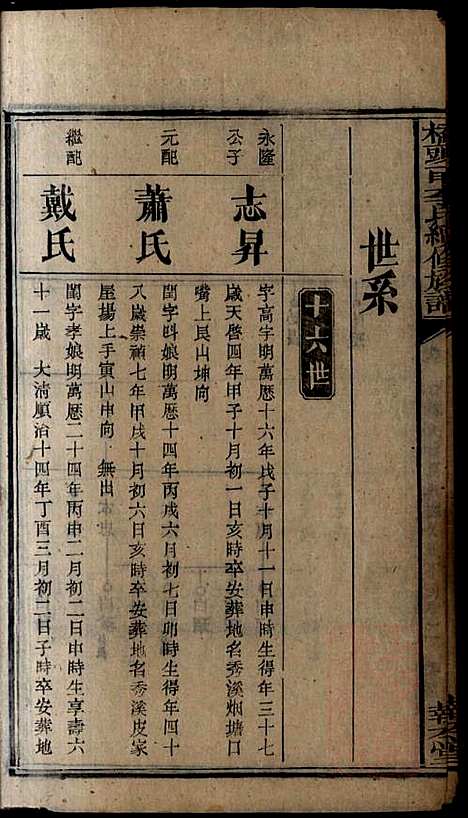 世系
十六世
永隆公子
志昇
字高字明萬曆十六年戊子十月十一日申時生得年三十七
歲天啓四年甲子十月初一日亥時卒安葬地名秀溪烟塘口
嘴上艮山坤向
元配
蕭氏
閨字時娘明萬曆十四年丙戌六月初七日卯時生得年四十
八歲崇禎七年甲戌十月初六日亥時卒安葬地名秀溪皮家
屋場上手寅山申向 無出
繼配
戴氏
閨字孝娘明萬曆二十四年丙申二月初二日申時生享壽六
十一歲 大清順治十四年丁酉三月初二日子時卒安葬地